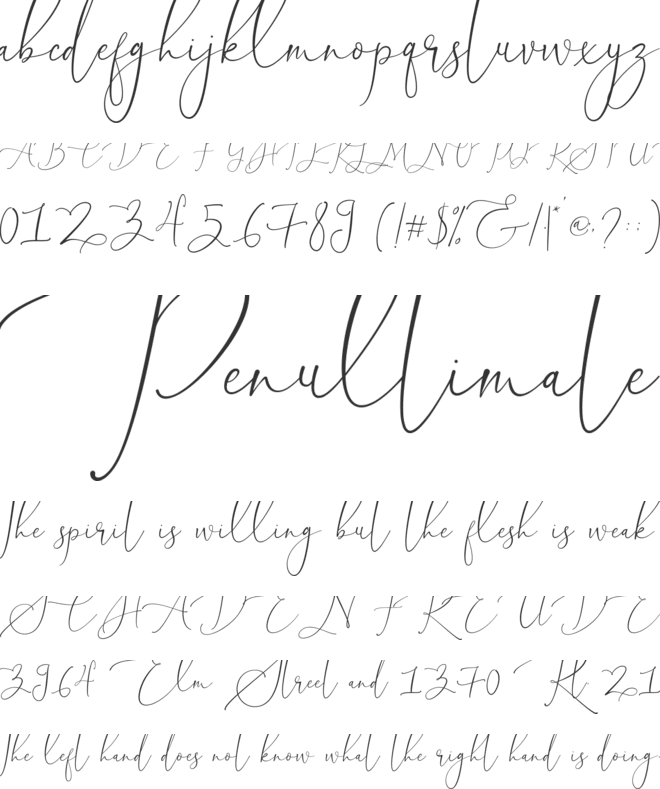 abcdefghijklmnopqrstuvwxyz
A B C D E F G H I J K L M N O P Q R S T U
0123456789 (!#$%&/|*'@.?::)
Penultimate
The spirit is willing but the flesh is weak
SCHADENFREUDE
3964 Elm Street and 1370 Rt. 21
The left hand does not know what the right hand is doing